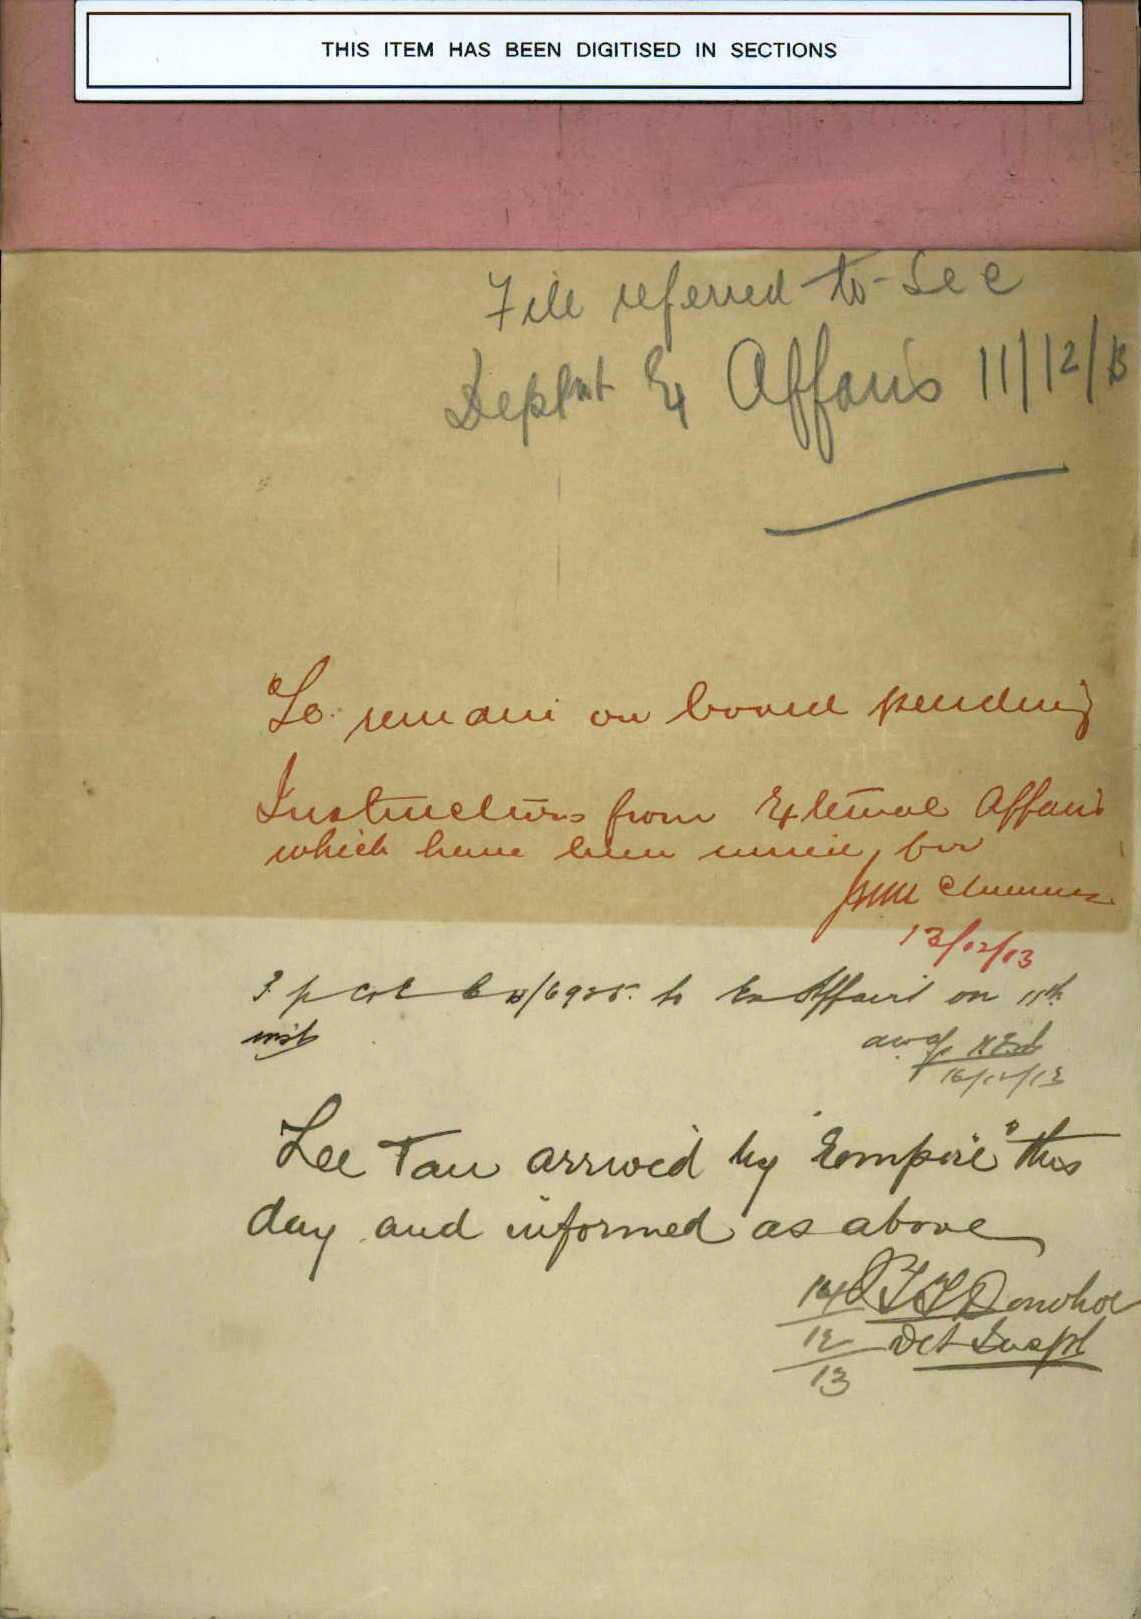 THIS ITEM HAS BEEN DIGITISED IN SECTIONS
File referred to Sec
Deptmt Ex Affairs 11/12/13
To remain on board pending
Instructions from External Affairs
which have been
13/12/13
to Ex Affairs on 11th
inst
16/12/13
Lee Tau arrived by "Empire" this
day and informed as above
Donohoe
Det Inspt
12
13